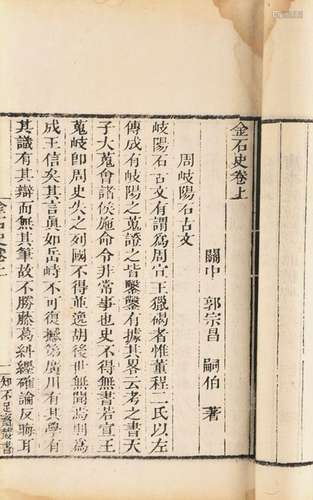 金石史卷上
關中 郭宗昌 嗣伯 著
周岐陽石古文
岐陽石古文有謂為周宣王獵碣者惟董程二氏以左
傳成有岐陽之蒐證之皆鑿鑿有據其畧云考之書天
子大蒐會諸侯施命令非常事也史不得無書若宣王
蒐岐即周史失之列國不得並逸胡後世無聞焉則為
成王信矣其言眞如岳峙不可復撼第廣川有其學有
其識有其辯而無其筆故不勝藤葛糾纒確論反晦耳
金石史卷上
一
知不足齋叢書